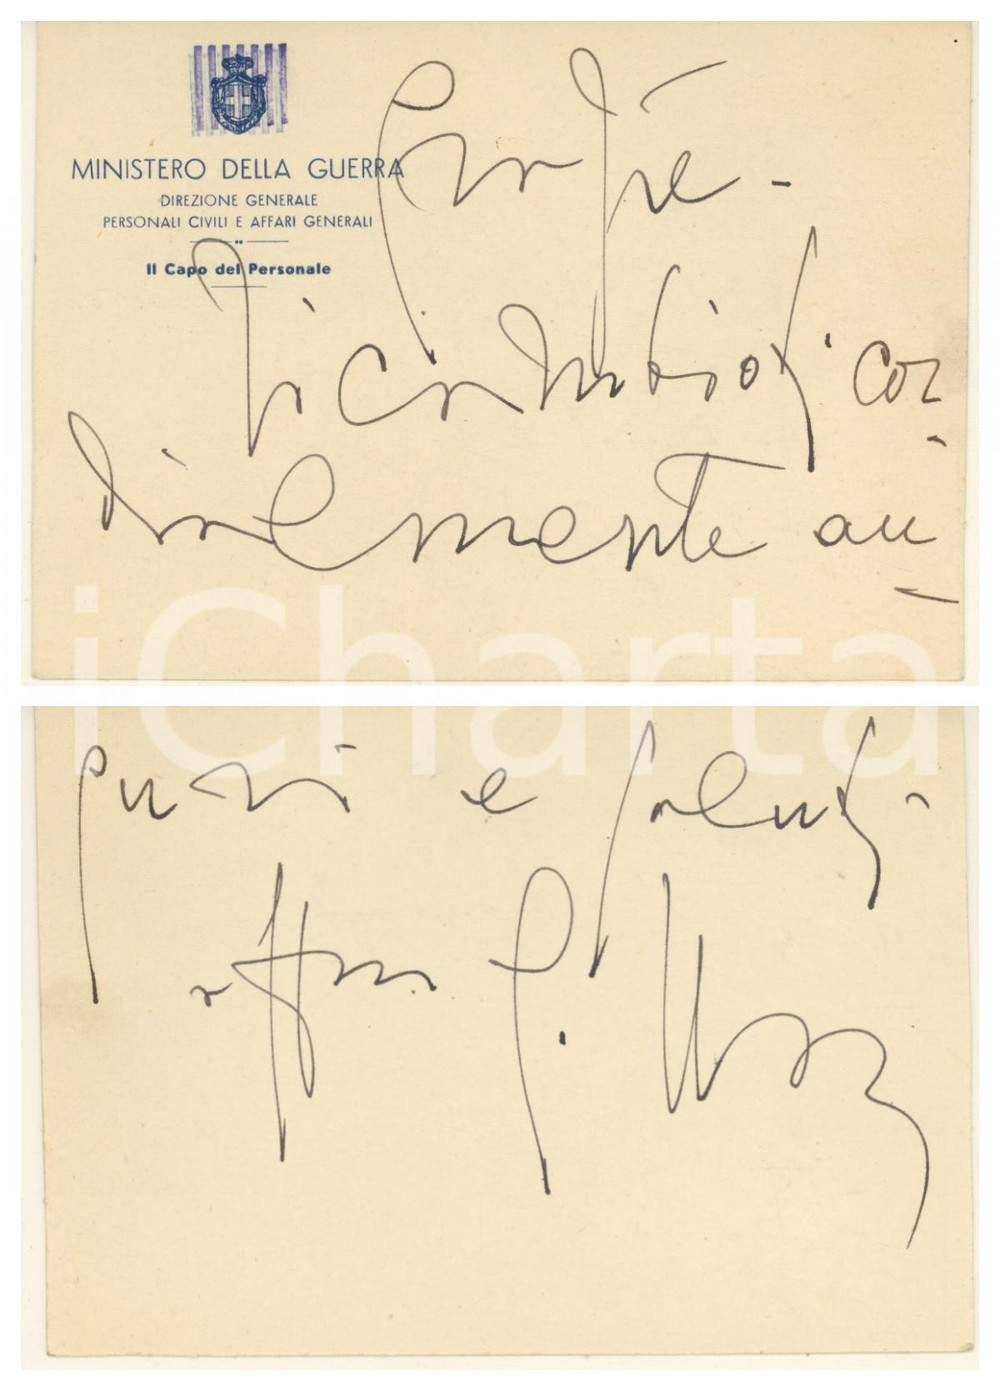 MINISTERO DELLA GUERRA
DIREZIONE GENERALE
PERSONALI CIVILI E AFFARI GENERALI
Il Capo del Personale
Ricambiati cor
dialmente au
guri e saluti
iCharta